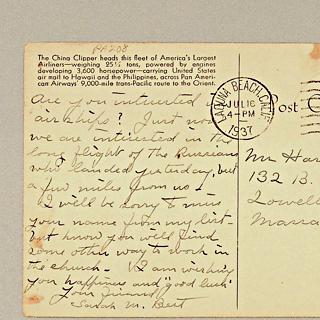 PA208
The China Clipper heads this fleet of America's Largest
Airliners—weighing 25½ tons, powered by engines
developing 3,600 horsepower—carrying United States
air mail to Hawaii and the Philippines, across Pan Ameri-
can Airways' 9,000-mile trans-Pacific route to the Orient.
Are you interested in
air ships? Just now
we are interested in the
long flight of the Russians
who landed yesterday, but
a few miles from us.
I will be sorry to miss
your name from my list—
but know you will find
some other way to work in
the church. I am wishing
you happiness and "good luck"
Your friend
Sarah M. Bert
LAGUNA BEACH, CALIF.
JUL 16
4-PM
1937
Post
Mr Har
132 B.
Lowell
Massa